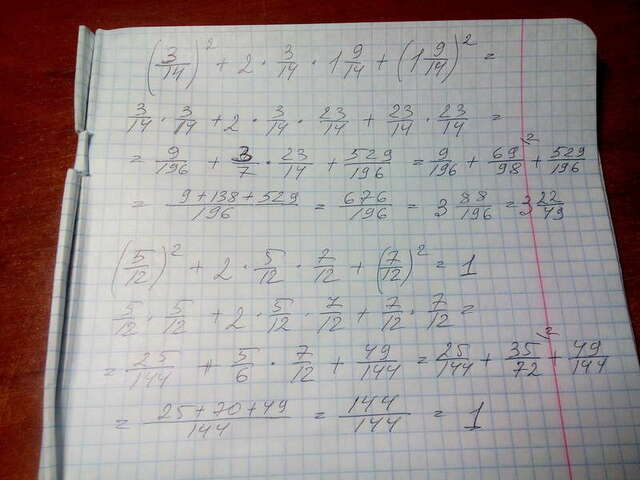 (3/14)² + 2 · 3/14 · 1 9/14 + (1 9/14)² =
3/14 · 3/14 + 2 · 3/14 · 23/14 + 23/14 · 23/14 =
= 9/196 + 3/7 · 23/14 + 529/196 = 9/196 + 69/98 ² + 529/196
= 9+138+529/196 = 676/196 = 3 88/196 = 3 22/49
(5/12)² + 2 · 5/12 · 7/12 + (7/12)² = 1
5/12 · 5/12 + 2 · 5/12 · 7/12 + 7/12 · 7/12 =
= 25/144 + 5/6 · 7/12 + 49/144 = 25/144 + 35/72 ² + 49/144
= 25+70+49/144 = 144/144 = 1